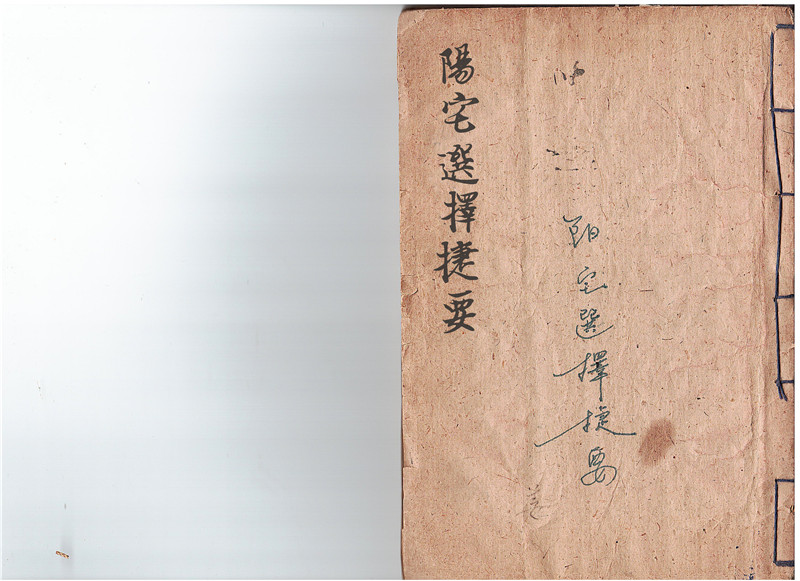 阳宅選擇捷要
陽宅選擇捷要